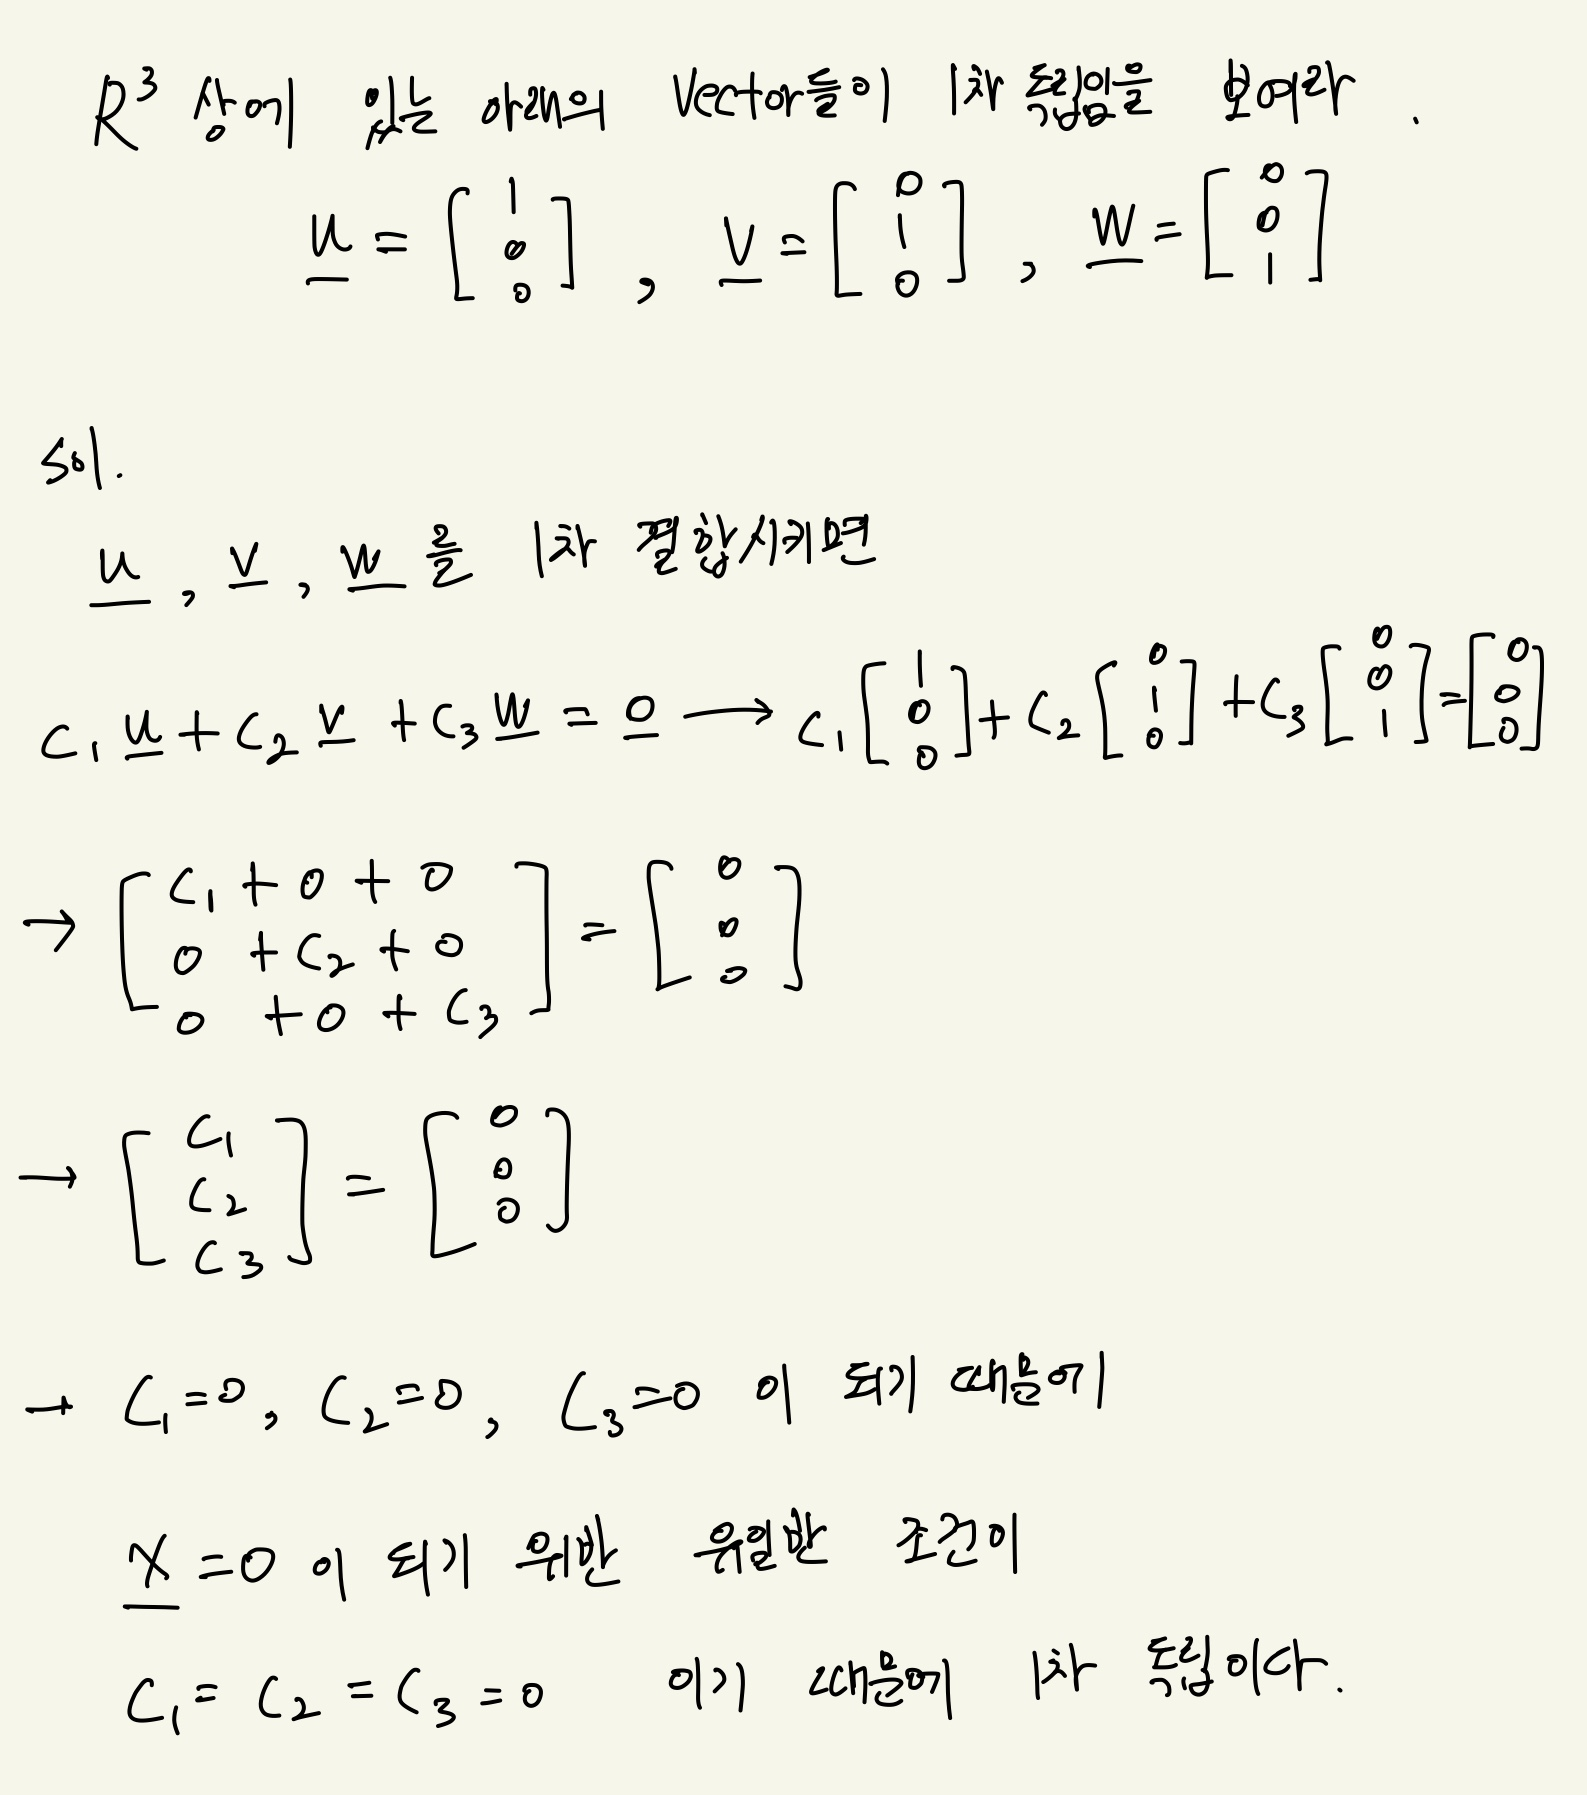 R³ 상에 있는 아래의 Vector들이 1차 독립임을 보여라.
u = [1 0 0], v = [0 1 0], w = [0 0 1]
sol.
u, v, w 를 1차 결합시키면
C₁u + C₂v + C₃w = 0 → C₁[1 0 0] + C₂[0 1 0] + C₃[0 0 1] = [0 0 0]
→ [C₁+0+0 0+C₂+0 0+0+C₃] = [0 0 0]
→ [C₁ C₂ C₃] = [0 0 0]
→ C₁=0, C₂=0, C₃=0 이 되기 때문에
x=0 이 되기 위한 유일한 조건이
C₁= C₂ = C₃ = 0 이기 때문에 1차 독립이다.